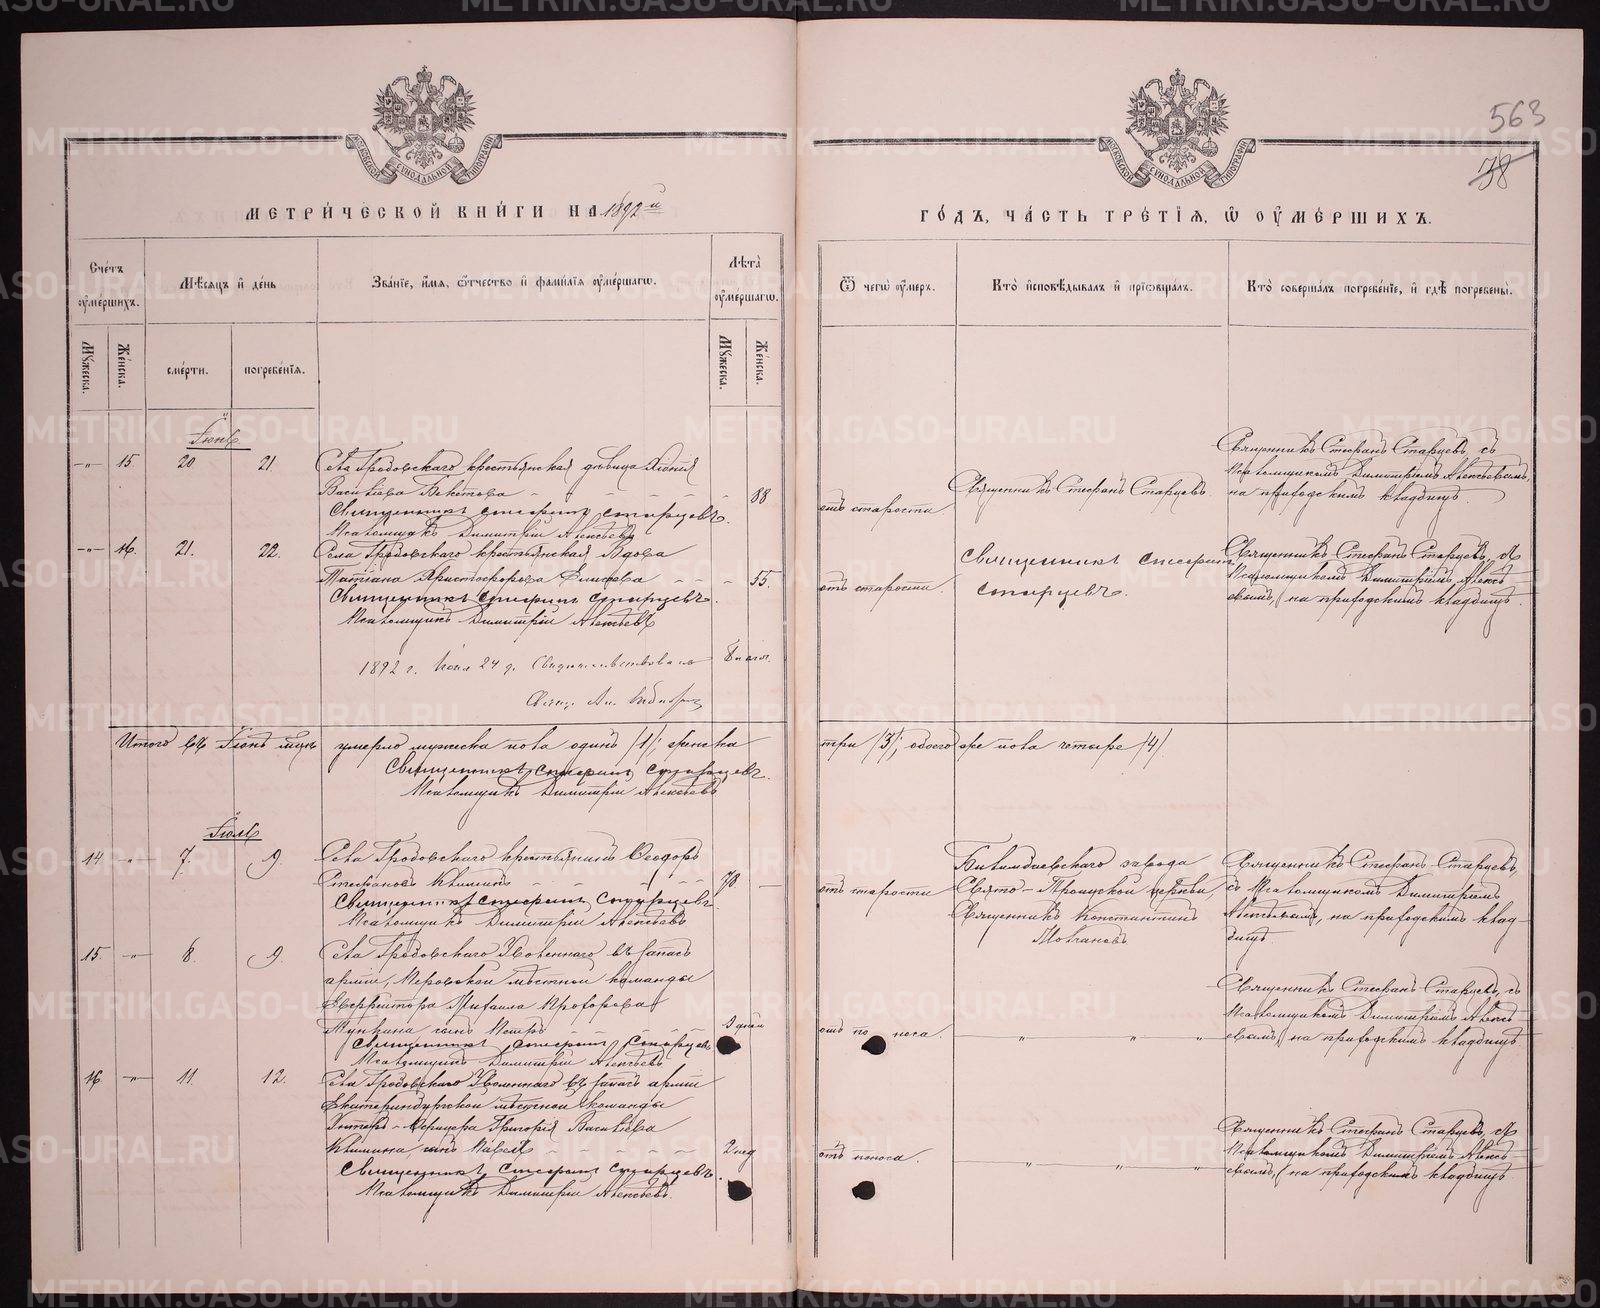 563
38
МОСКОВСКОЙ СѴНОДАЛЬНОЙ ТИПОГРАФІИ
МОСКОВСКОЙ СѴНОДАЛЬНОЙ ТИПОГРАФІИ
МЕТРИ́ЧЕСКОЙ КНИ́ГИ НА 1892й
ГО́ДЪ, ЧА́СТЬ ТРЕ́ТІѦ, Ѽ ОУ҆МЕ́РШИХЪ.
Сче́тъ оу҆ме́ршихъ.
Мѣ́сяцъ и҆ де́нь
Зва́ніе, и҆́мя, ѻ҆́тчество и҆ фами́лія оу҆ме́ршагѡ.
Лѣта̀ оу҆ме́ршагѡ.
Ѿ чегѡ̀ оу҆́меръ.
Кто̀ и҆сповѣ́дывалъ и҆ прїѡбща́лъ.
Кто̀ соверша́лъ погребе́ніе, и҆ гдѣ̀ погребены̀.
Мꙋ́жеска.
Же́нска.
сме́рти.
погребе́нія.
Мꙋ́жеска.
Же́нска.
Іюнь
-"- 15. 20 21 Села Гробовскаго крестьянская дѣвица Лидія
Васильева Бекетова - - - - - 88
Священникъ Стефанъ Старцевъ.
Псаломщикъ Димитрій Алексѣевъ
отъ старости
Священникъ Стефанъ Старцевъ
Священникъ Стефанъ Старцевъ съ
Псаломщикомъ Димитріемъ Алексѣевымъ,
на приходскомъ кладбищѣ
-"- 16. 21. 22. Села Гробовскаго крестьянская вдова
Татіана Христофорова Елисова - - - 55.
Священникъ Стефанъ Старцевъ.
Псаломщикъ Димитрій Алексѣевъ
отъ старости.
Священникъ Стефанъ
Старцевъ.
Священникъ Стефанъ Старцевъ, съ
Псаломщикомъ Димитріемъ Алексѣ-
евымъ, на приходскомъ кладбищѣ.
1892 г. Іюля 24 д. Свидѣтельствовалъ
Свящ. Ал.
Итого въ Іюнѣ мѣсяцѣ умерло мужеска пола одинъ /1/; женска
три /3/; обоего же пола четыре /4/.
Священникъ Стефанъ Старцевъ.
Псаломщикъ Димитрій Алексѣевъ
Іюль
14 -"- 7. 9. Села Гробовскаго крестьянинъ Ѳеодоръ
Стефановъ Климинъ - - - - 78 -
Священникъ Стефанъ Старцевъ
Псаломщикъ Димитрій Алексѣевъ
отъ старости
Билимбаевскаго завода
Свято-Троицкой церкви,
Священникъ Константинъ
Молчановъ
Священникъ Стефанъ Старцевъ,
съ Псаломщикомъ Димитріемъ
Алексѣевымъ, на приходскомъ клад-
бищѣ.
15. -"- 8. 9. Села Гробовскаго Уволеннаго въ запасъ
арміи, Пермской мѣстной команды
Ефрейтора Михаила Прохорова
сынъ Петръ - - - - 9 дней
Священникъ Стефанъ Старцевъ
Псаломщикъ Димитрій Алексѣевъ
отъ поноса.
" " "
Священникъ Стефанъ Старцевъ, съ
Псаломщикомъ Димитріемъ Алексѣ-
евымъ, на приходскомъ кладбищѣ
16 -"- 11. 12. Села Гробовскаго Уволеннаго въ запасъ арміи
Екатеринбургской мѣстной команды
Унтеръ-Офицера Григорія Васильева
Климина сынъ Павелъ - - - - - 2 нед
Священникъ Стефанъ Старцевъ.
Псаломщикъ Димитрій Алексѣевъ.
отъ поноса.
" " "
Священникъ Стефанъ Старцевъ, съ
Псаломщикомъ Димитріемъ Алексѣ-
евымъ, на приходскомъ кладбищѣ
METRIKI.GASO-URAL.RU